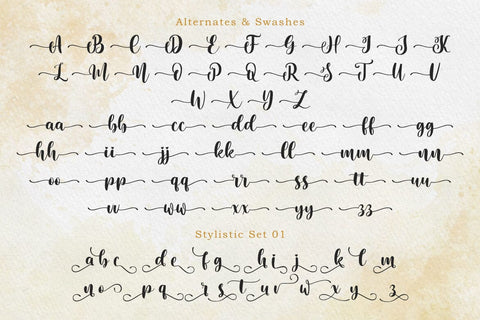 Alternates & Swashes
A B C D E F G H I J K
L M N O P Q R S T U V
W X Y Z
aa bb cc dd ee ff gg
hh ii jj kk ll mm nn
oo pp qq rr ss tt uu
vv ww xx yy zz
Stylistic Set 01
a b c d e f g h i j k l m
n o p q r s t u v w x y z